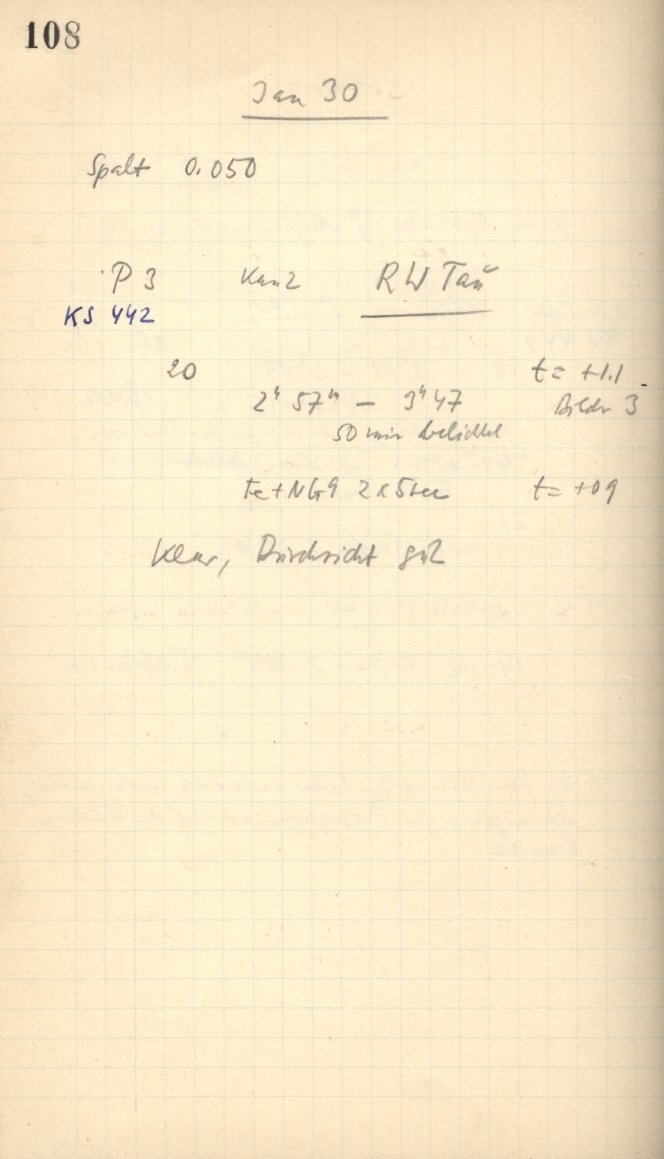 108
Jan 30
Spalt 0.050
P 3 Kam 2 RW Tau
KS 442
20 t = +1.1
2h 57m — 3h 47 Bildr 3
50 min belichtet
Fe + NG9 2 x 5 sec t = +0 9
Klar, Durchsicht gut